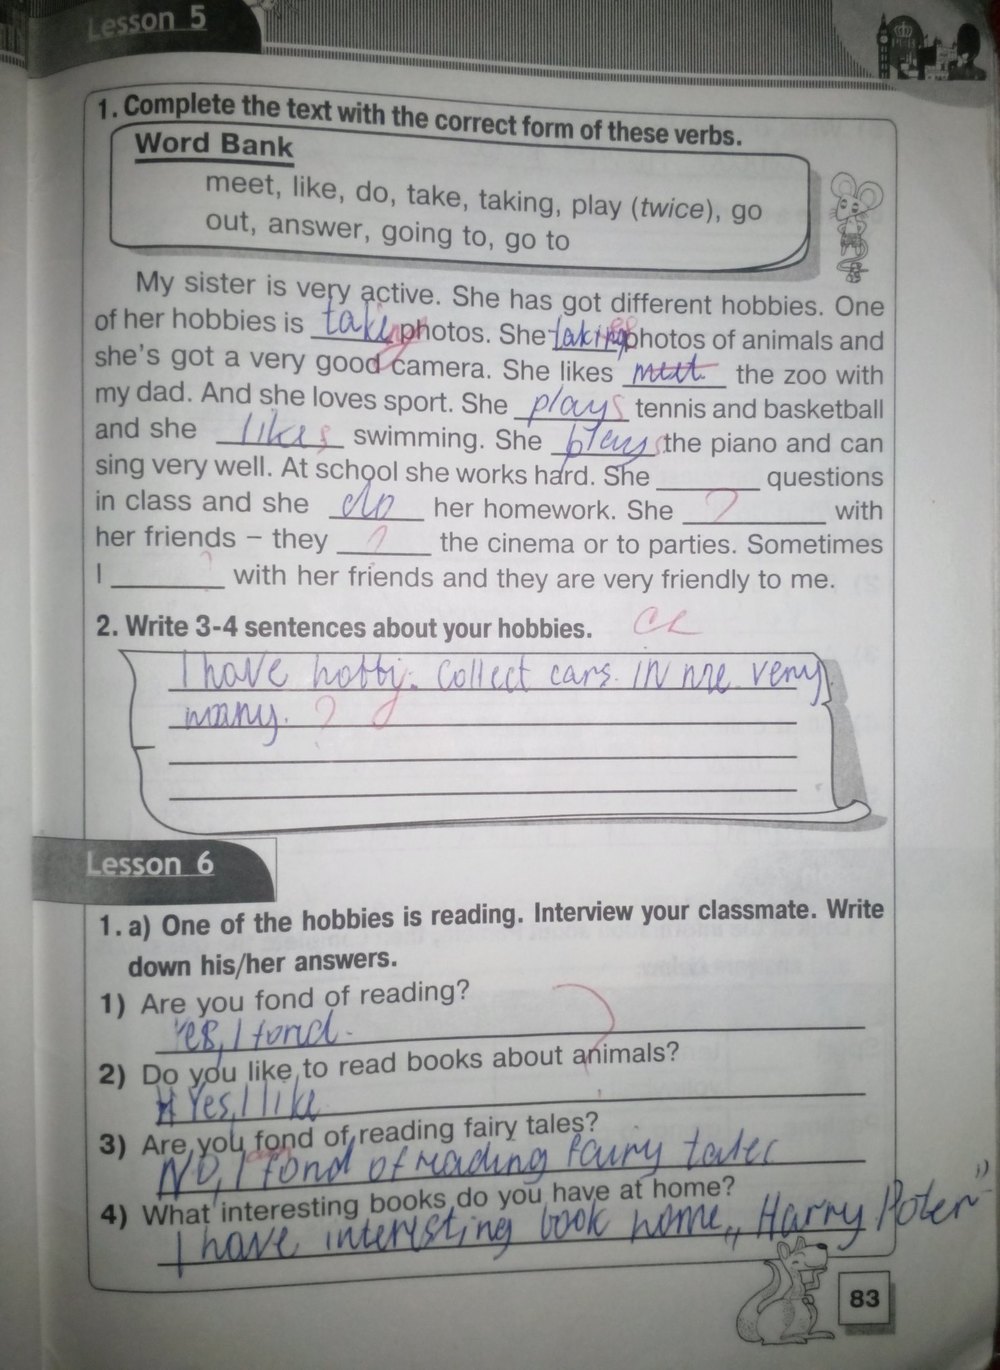 Lesson 5
1. Complete the text with the correct form of these verbs.
Word Bank
meet, like, do, take, taking, play (twice), go
out, answer, going to, go to
My sister is very active. She has got different hobbies. One
of her hobbies is taking photos. She taking photos of animals and
she's got a very good camera. She likes meet the zoo with
my dad. And she loves sport. She plays tennis and basketball
and she likes swimming. She plays the piano and can
sing very well. At school she works hard. She ________ questions
in class and she do her homework. She ? with
her friends – they ? the cinema or to parties. Sometimes
I ? with her friends and they are very friendly to me.
2. Write 3-4 sentences about your hobbies.
I have hobby. Collect cars. IN me very
many. ?
Lesson 6
1. a) One of the hobbies is reading. Interview your classmate. Write
down his/her answers.
1) Are you fond of reading?
Yes, I fond.
2) Do you like to read books about animals?
Yes, I like
3) Are you fond of reading fairy tales?
No, I fond of reading fairy tales
4) What interesting books do you have at home?
I have interesting book home „Harry Poter"
83